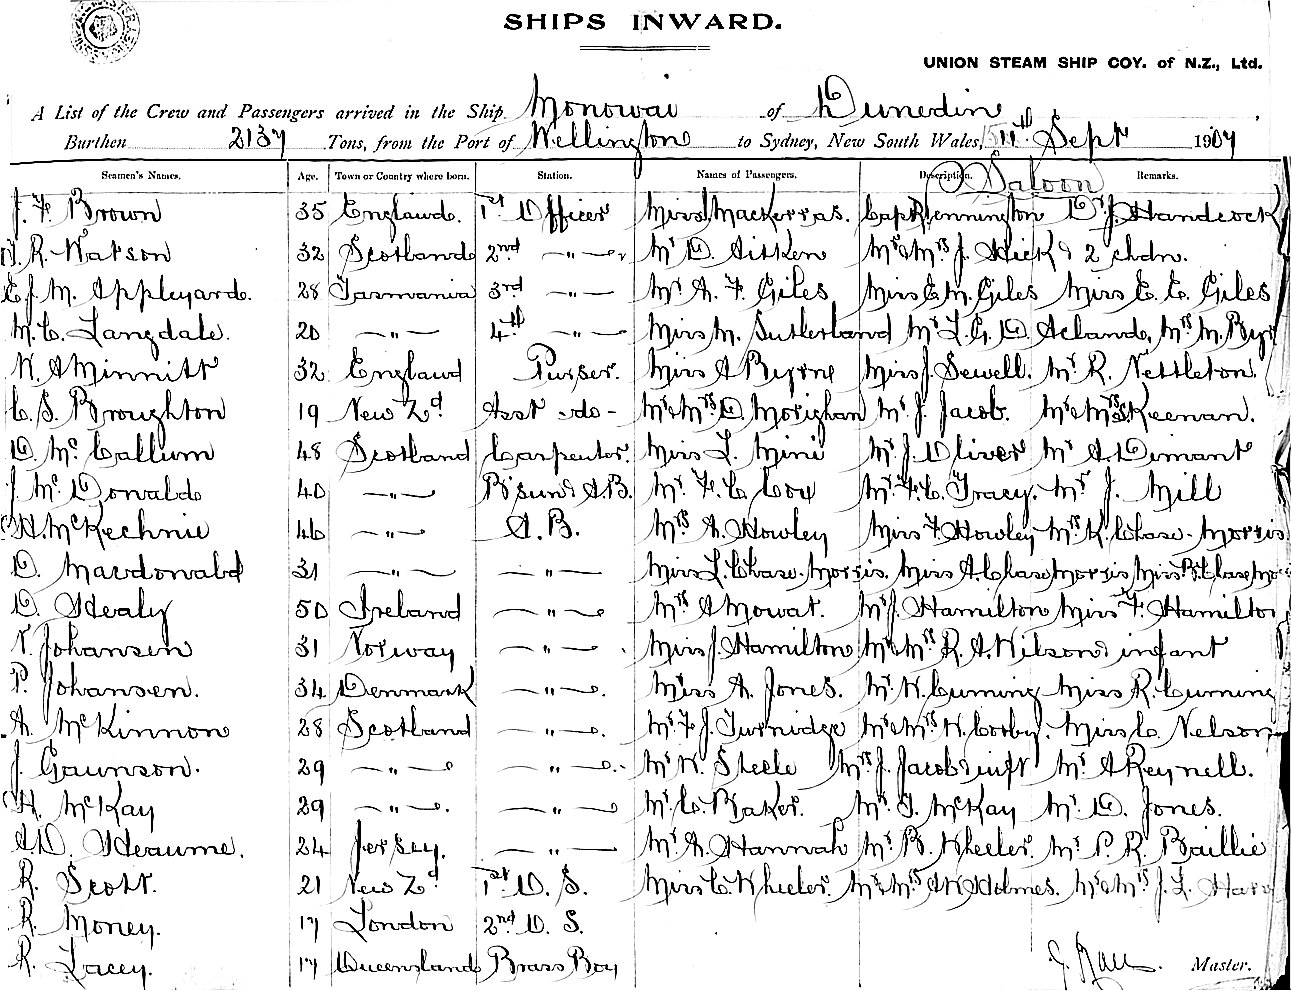 SHIPS INWARD.
UNION STEAM SHIP COY. of N.Z., Ltd.
A List of the Crew and Passengers arrived in the Ship Monowai of Dunedin
Burthen 2137 Tons, from the Port of Wellington to Sydney, New South Wales, Sept 1907
Seamen's Names. Age. Town or Country where born. Station. Names of Passengers. Description. Remarks.
Saloon
J. F. Brown 35 England. 1st Officer Miss Mackerras. Capt Rennington Dr J. Handcock
R. Watson 32 Scotland 2nd —„— Mr D. Aitken Mr & Mrs J. Hick & 2 chdn.
E. J. M. Appleyard. 28 Tasmania 3rd —„— Mr A. F. Giles Miss E. M. Giles Miss E. E. Giles
M. C. Langdale. 20 —„— 4th —„— Miss M. Sutherland Mr L. G. D. Acland, Mrs M. Byr
N. A Minnitt 32 England Purser. Miss A Byrne Miss J. Sewell. Mr R. Nettleton.
C. S. Broughton 19 New Zd Asst -do- Mr & Mrs D Morighan Mr J. Jacob. Mr & Mrs Keenan.
D. McCallum 48 Scotland Carpenter. Miss L. Mini Mr J. Oliver Mr A Dimant
J. McDonald 40 —„— B'sun & A.B. Mr F. C. Cox Mr F. C. Tracy. Mr J. Mill
A. McKechnie 46 —„— A.B. Mrs A. Howley Miss F. Howley Mrs K. Chase-Morris
D. Macdonald 31 —„— —„— Miss L. Chase-Morris. Miss A. Chase Morris Miss Chase Mo
D. Healy 50 Ireland —„— Mrs A Mowat. Mr J. Hamilton Miss F. Hamilton
N. Johansen 31 Norway —„— Miss J. Hamilton Mr & Mrs R. A. Wilson & infant
P. Johansen. 34 Denmark —„— Miss A. Jones. Mr W. Cuming Miss R. Cumming
A. McKinnon 28 Scotland —„— Mr F. J. Turnidge Mr & Mrs W. Corby. Miss C. Nelson
J. Gaunson. 29 —„— —„— Mr W. Steele Mrs J. Jacob & inft Mr A Reynell.
H. McKay 29 —„— —„— Mr C. Baker. Mr T. McKay Mr D. Jones.
A. D. Heaume. 24 Jersey. —„— Mr A. Hannah Mr B. Wheeler. Mr P. R. Baillie
R. Scott. 21 New Zd 1st O. S. Miss C. Wheeler. Mr & Mrs W Holmes. Mr & Mrs J. L.
R. Money. 17 London 2nd O. S.
R. Lacey. 17 Queensland Brass Boy
Master.